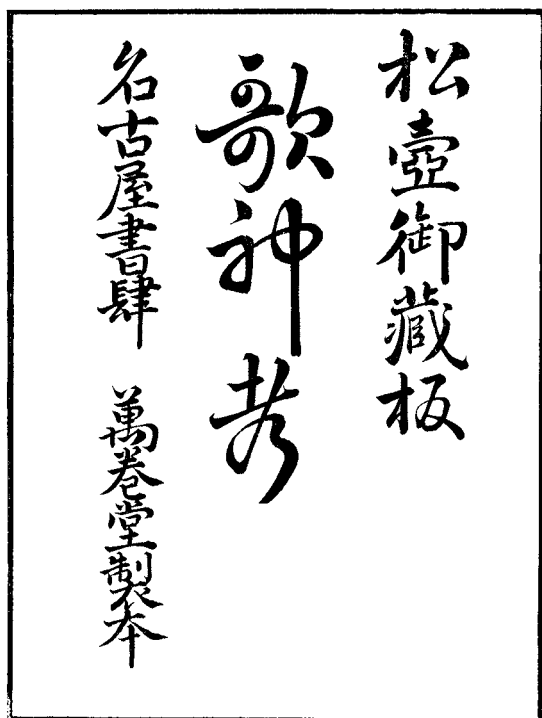 松壺御藏板
歌神考
名古屋書肆 萬卷堂製本